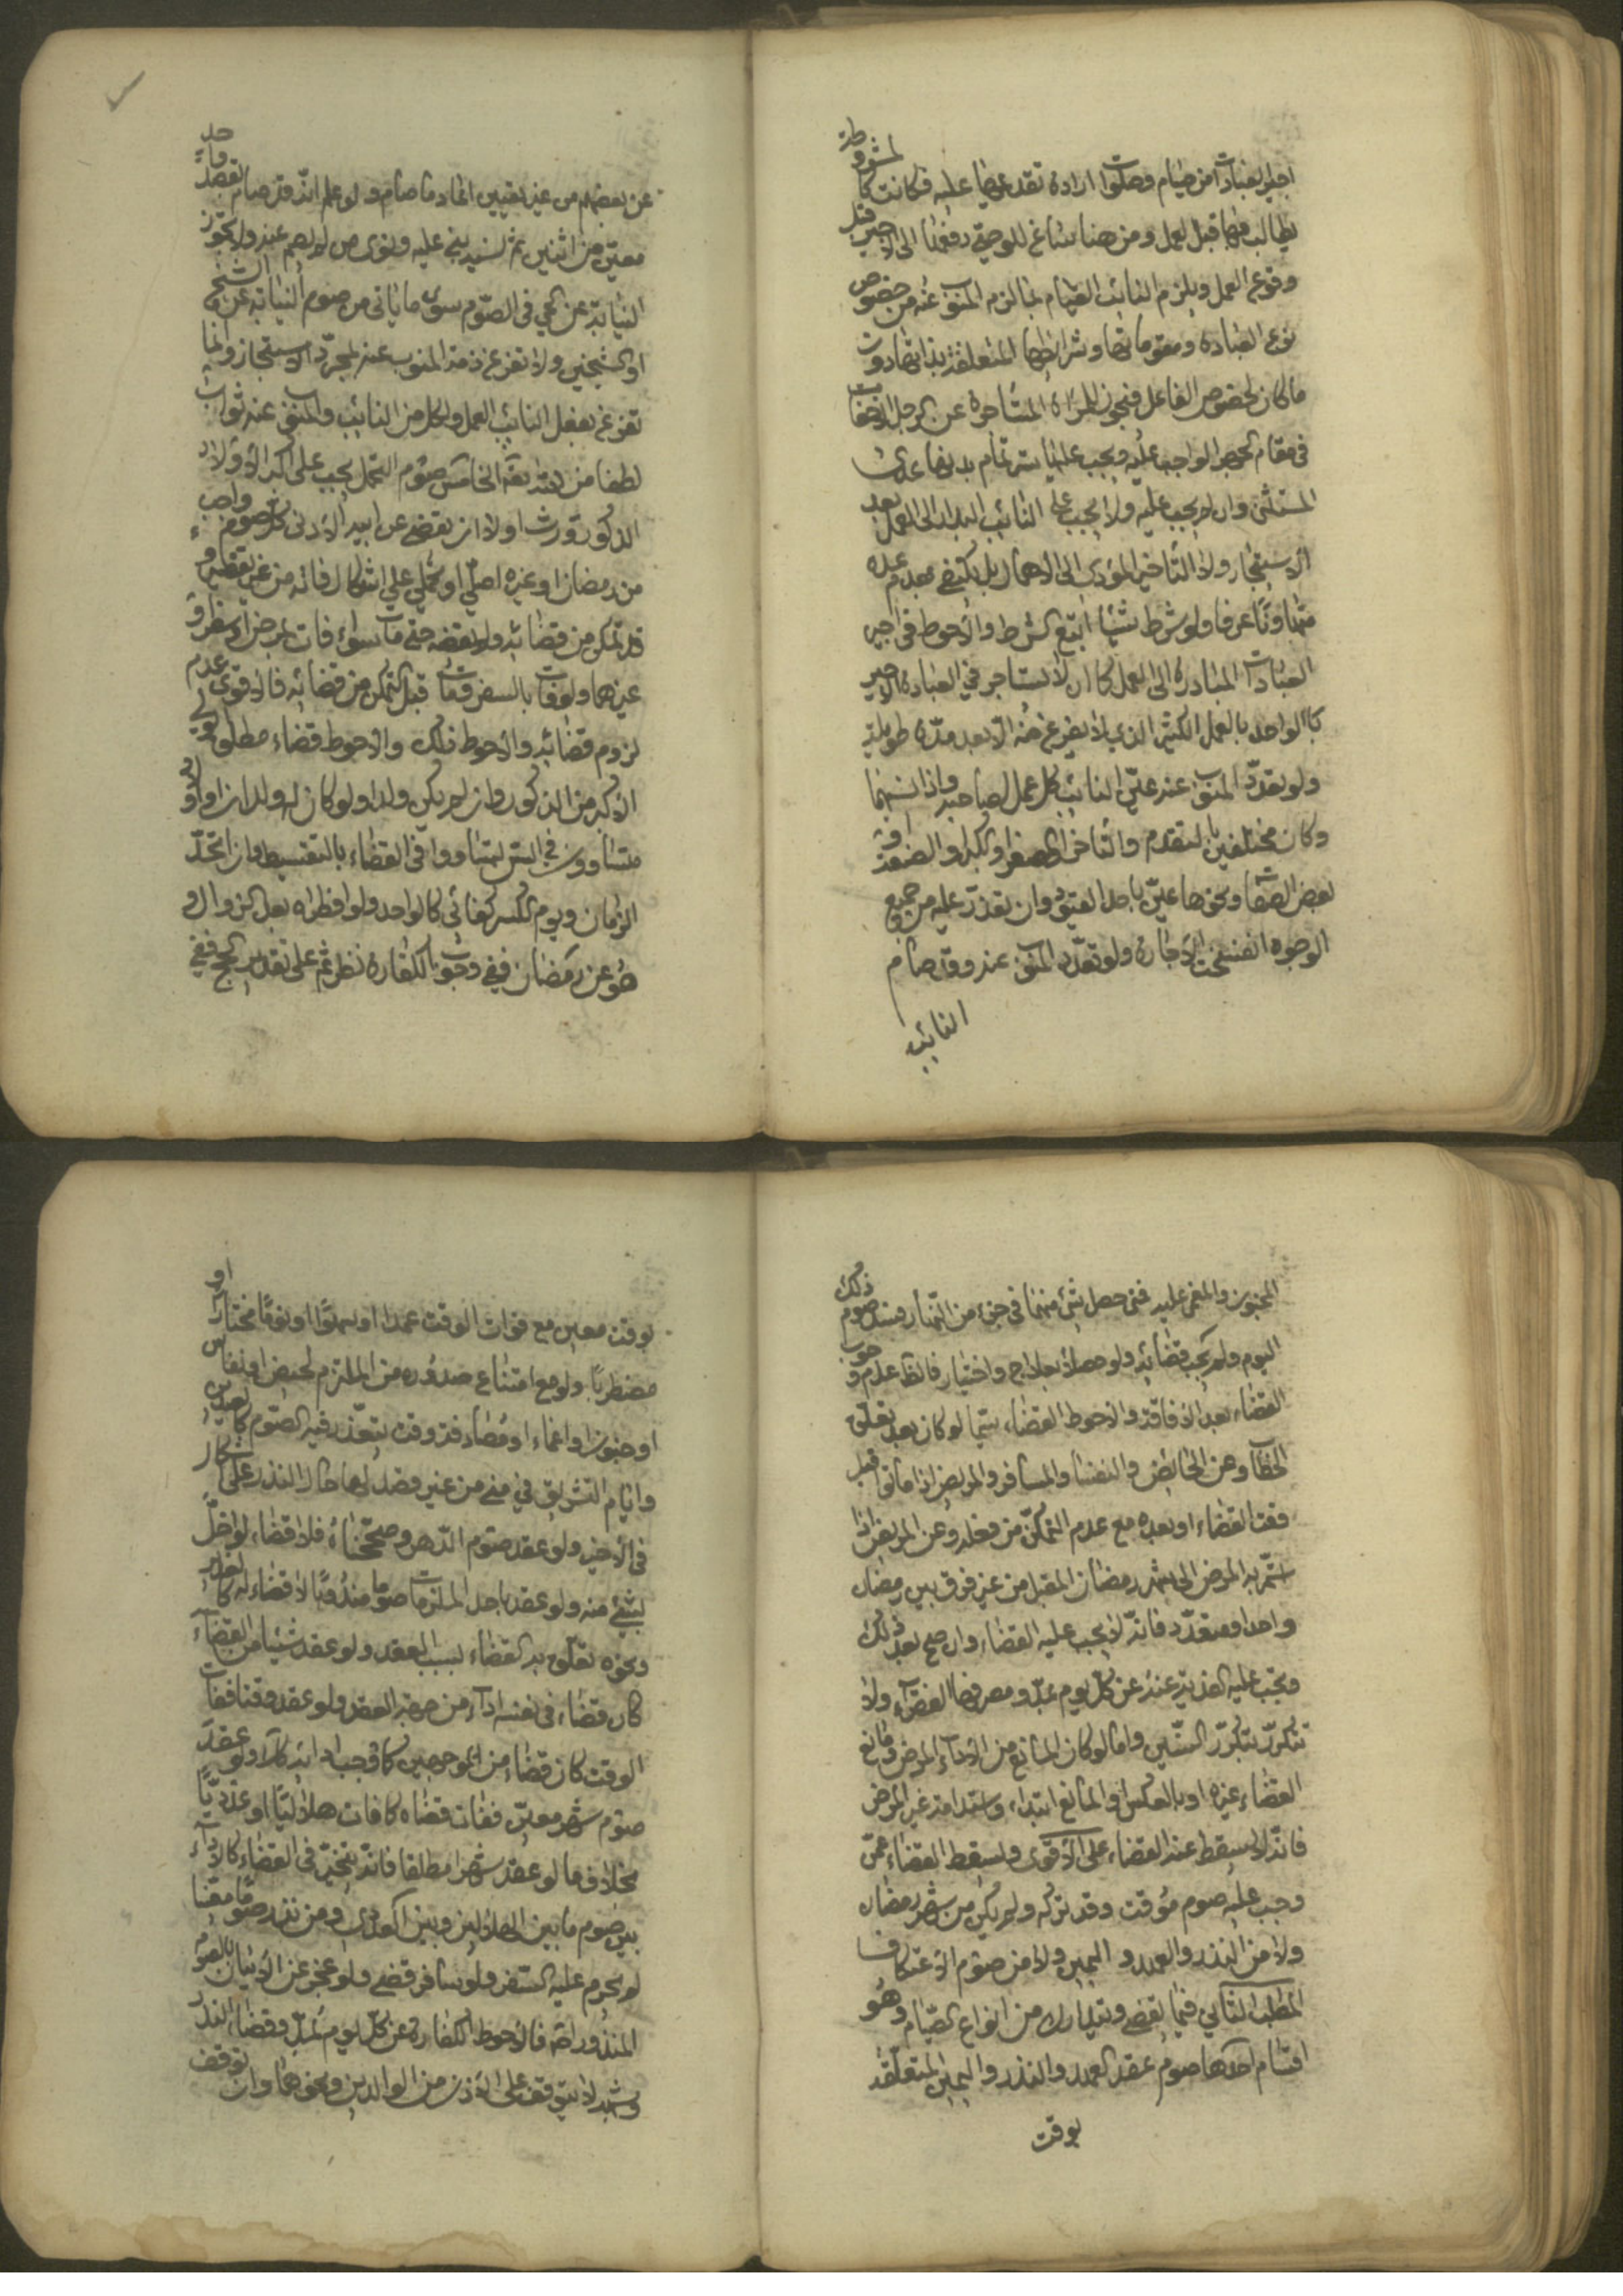 اجير العبادات من صيام وصلوات ارادة تقديمها عليه فكانت كالمشروطة
يطالب فيها قبل العمل ومن هنا ساغ للوصي دفعها الى الاجير قبل
وقوع العمل ويلزم النائب القيام بما لزم المنوب عنه من خصوص
نوع العبادة ومقوماتها وشرائطها المتعلقة بذاتها دون
ما كان لخصوص الفاعل فيجوز للمراة المستأجرة عن الرجل الاخفات
في مقام الجهر الواجب عليه ويجب عليها ستر تمام بدنها عدى
المستثنى وان لم يجب عليه ولا يجب على النائب البدار الى العمل بعد
الاستيجار ولا التأخير المؤدي الى الاهمال بل يكتفى بعدم عده
متهاونًا عرفا ولو شرط شيئا اتبع الشرط والاحوط في اجير
العبادات المبادرة الى العمل كما ان لا يستاجر في العبادة الاجير
الواحد بالعمل الكثير الذي لا يفرغ منه الا بعد مدة طويلة
ولو تعدد المنوب عنه عيّن النائب كل عمل لصاحبه واذا نسيهما
وكان مختلفين بالتقدم والتأخر او الصغر والكبر او الضعة او في
بعض الصفات ونحوها عيّن باحد القيود وان تعذر عليه من جميع
الوجوه انفسخت الاجارة ولو تعدد المنوب عنه وقد صام
النائب
عن بعضهم من غير تعيين اعاد ما صام ولو علم انه قد صام بقصد واحد
معين من اثنين ثم نسيه بنى عليه ونوى من لم يصم عنه ولا تجوز
النيابة عن الحي في الصوم سوى ما ياتي من صوم النيابة عن الشيخ
او الشيخين ولا تفرغ ذمة المنوب عنه بمجرد الاستيجار وانما
تفرغ بفعل النائب العمل ولكل من النائب والمنوب عنه ثواب
لطفا من الله تعالى الخامس صوم التحمل يجب على اكبر الاولاد
الذكور ورث اولا ان يقضي عن ابيه الادنى كل صوم واجب
من رمضان او غيره اصلي او تحملي على اشكال فاته من غير تقصير و
قد تمكن من قضائه ولم يقضه حتى مات سواء فات لمرض او سفر او
غيرهما ولو فات بالسفر ومات قبل التمكن من قضائه فالاقوى عدم
لزوم قضائه والاحوط ذلك والاحوط قضاء مطلق
الاكبر من الذكور وان لم يكن ولدا ولو كان له ولدان او اولاد
متساوون في السن تساووا في القضاء بالتقسيط وان اتحد
الزمان ويوم الكسر كفائي كالواحد ولو افطراه بعد الزوال و
هو عن رمضان ففي وجوب الكفارة نظر ثم على تقدير الصحة ففي
المجنون والمغمى عليه فمتى حصل شيء منهما في جزء من النهار فسد صوم ذلك
اليوم ولم يجب قضائه ولو حصلا بعلاج واختيار فالظ عدم وجوب
القضاء بعد الافاقة والاحوط القضاء سيّما لو كان بعد تعلق
الخطاب وعن الحائض والنفساء والمسافر والمريض اذا ماتوا قبل
وقت القضاء او بعده مع عدم التمكن من فعله وعن المريض اذا
استمر به المرض الى شهر رمضان المقبل من غير فرق بين رمضان
واحد او متعدد فانه لا يجب عليه القضاء وان صح بعد ذلك
وتجب عليه الفدية عنه عن كل يوم بمد ومصرفها الفقراء ولا
تتكرر بتكرر السنين واما لو كان المانع من الاداء المرض ومانع
القضاء غيره او بالعكس او المانع ابتداء واستدامة غير المرض
فانه لا يسقط عنه القضاء على الاقوى ويسقط القضاء عمن
وجب عليه صوم مؤقت وقد تركه ولم يكن من شهر رمضان
ولا من النذر والعهد و اليمين ولا من صوم الاعتكاف
المطلب الثاني فيما يقضى ويتدارك من انواع الصيام وهو
اقسام احدها صوم عقد العهد والنذر واليمين المتعلقة
بوقت
بوقت معين مع فوات الوقت عمدا او سهوًا او نومًا مختارًا او
مضطرًا ولو مع امتناع صدوره من الملتزم لحيض او نفاس
او جنون او اغماء او مصادفة وقت يتعذر فيه الصوم كالعيدين
وايام التشريق في منى من غير قصد لها حال النذر على اشكال
في الاخير ولو عقد صوم الدهر وصححناه فلا قضاء لو اخلّ
بشيء منه ولو عقد باحد الملزمات صوما مندوبًا لا قضاء له كالغدير
ونحوه تعلق به القضاء بسبب العقد ولو عقد شيئا من القضاء
كان قضاء في نفسه اداء من جهة العقد ولو عقد وقتا ففات
الوقت كان قضاء من الموجبين كما وجب ادائه كك ولو عقد
صوم شهر معين ففات قضاه كما فات هلاليًا او عدديًا
بخلاف ما لو عقد شهرا مطلقا فانه يتخير في القضاء كالاداء
بين صوم ما بين الهلالين وبين العددي ومن نذر صومًا معينًا
لم يحرم عليه السفر ولو سافر قضى ولو عجز عن الاتيان بالصوم
المنذور اصلا فالاحوط الكفارة عن كل يوم بمد وقضاء النذر
وشبهه لا يتوقف على الاذن من الوالدين ونحوهما وان توقف